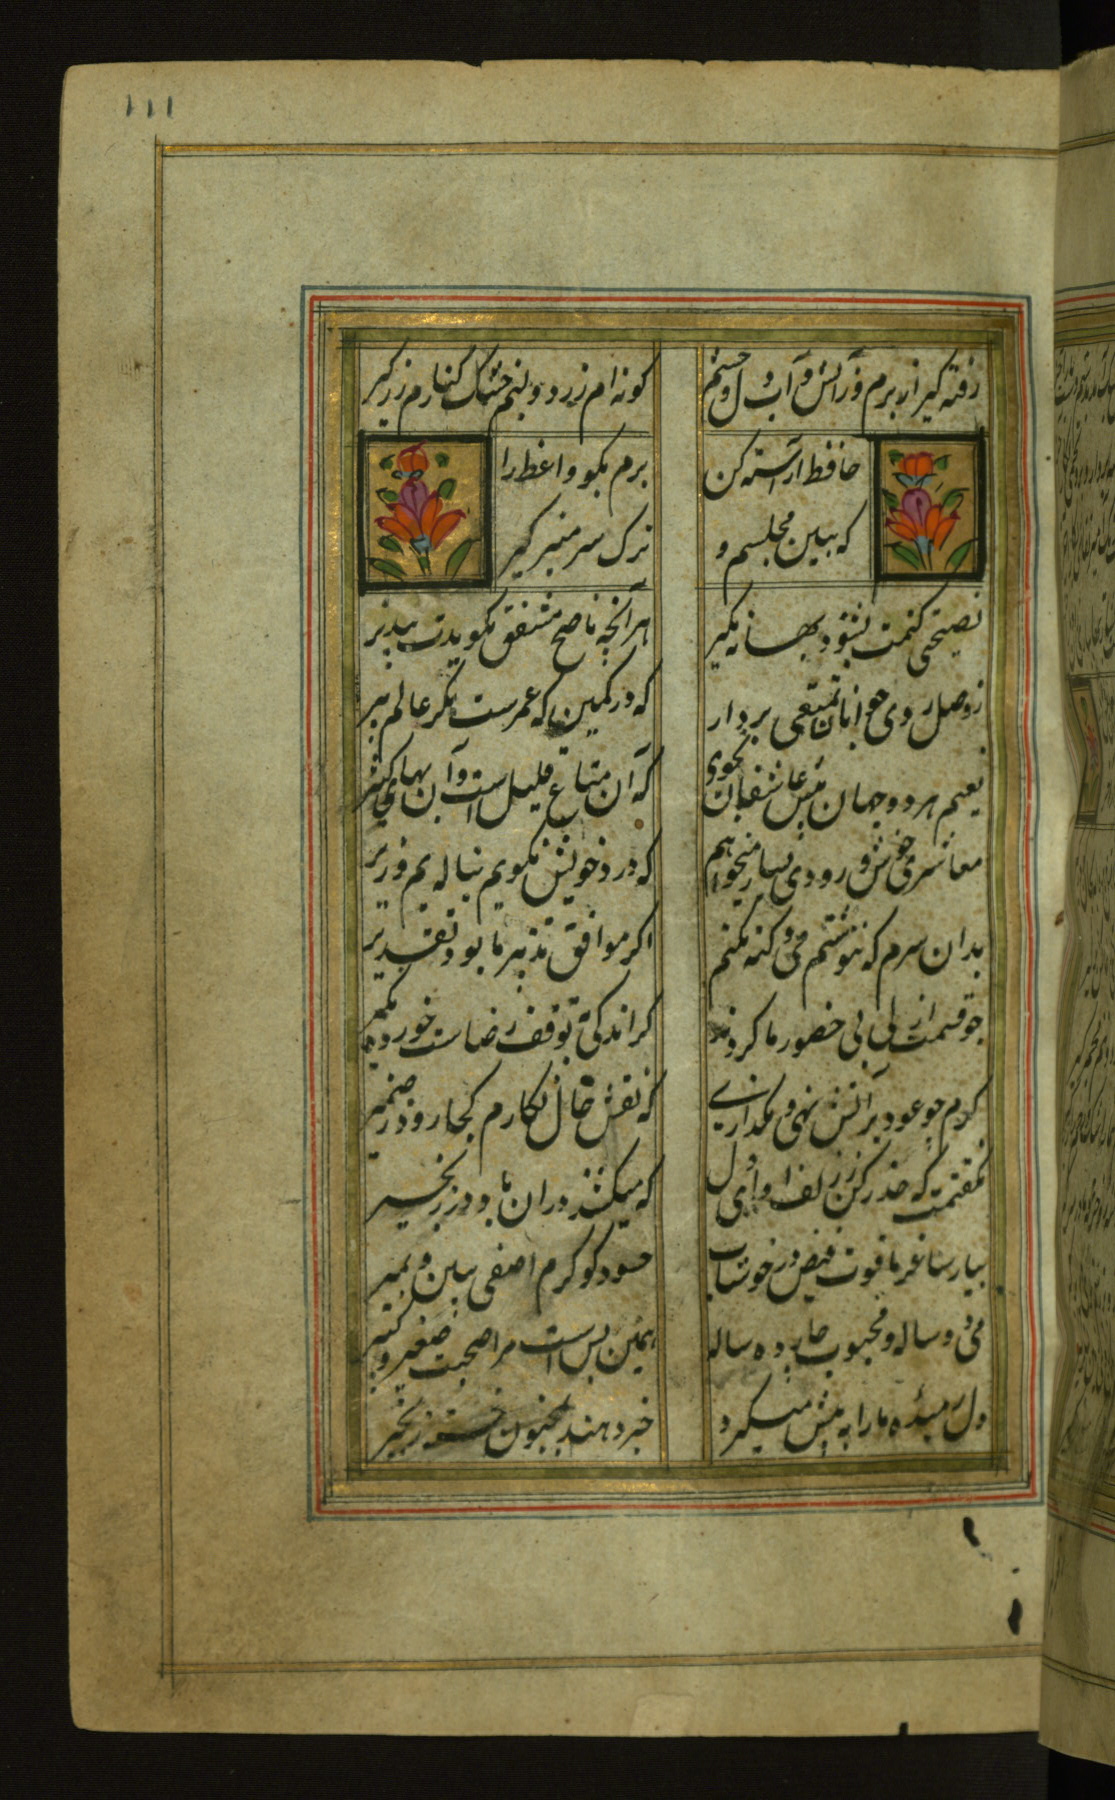 ۱۱۱
رفته گیر از برم و ز آتش و آب دل و چشم
کونه ام زرد و لبم خشک کنارم زر گیر
حافظ آراسته کن
بزم بکو واعظ را
که ببین مجلسم و
ترک سر منبر گیر
نصیحتی کنمت بشنو و بهانه مگیر
هر آنچه ناصح مشفق بگویدت بپذیر
ز وصل روی جوانان تمتعی بردار
که در کمین‌گه عمرست مکر عالم پیر
نعیم هر دو جهان پیش عاشقان بجوی
که آن متاع قلیل است و آن بهای کثیر
معاشری خوش و رودی بساز میخواهم
که درد خویش بگویم بناله بم و زیر
بدان سرم که ننوشم می و گنه نکنم
اگر موافق تدبیر ما بود تقدیر
چو قسمت ازلی بی حضور ما کردند
گر اندکی بوفق رضاست خورده مگیر
که نقش خال نگارم کجا رود ز ضمیر
نگفتمت که حذر کن ز زلف او ای دل
که میکشند در آن باد در زنجیر
بیار ساغر یاقوت فیض در خوشاب
حسود کو کرم آصفی ببین و بمیر
می دو ساله و محبوب چارده ساله
همین بس است مرا صحبت صغیر و کبیر
دل رمیده ما را که پیش میگیرد
خبر دهید بمجنون خسته ز زنجیر